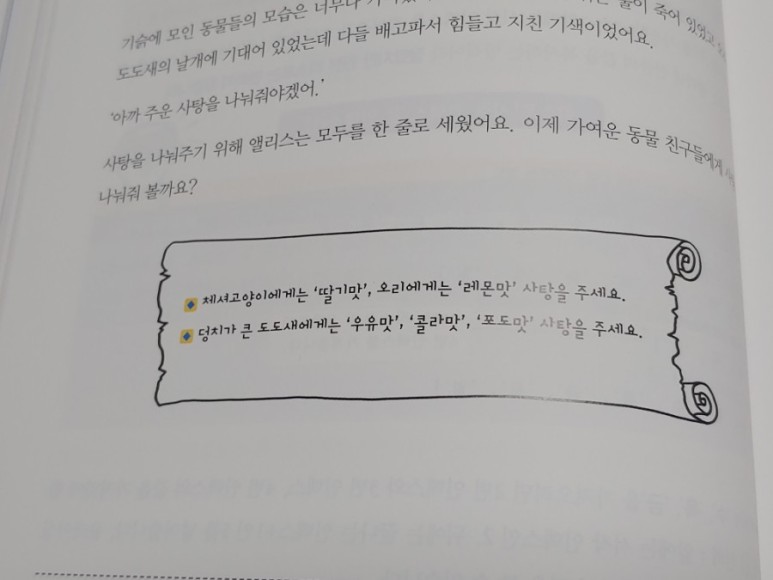 기슭에 모인 동물들의 모습은 너무나 죽어 있었고
도도새의 날개에 기대어 있었는데 다들 배고파서 힘들고 지친 기색이었어요.
‘아까 주운 사탕을 나눠줘야겠어.’
사탕을 나눠주기 위해 앨리스는 모두를 한 줄로 세웠어요. 이제 가여운 동물 친구들에게
나눠줘 볼까요?
체셔고양이에게는 ‘딸기맛’, 오리에게는 ‘레몬맛’ 사탕을 주세요.
덩치가 큰 도도새에게는 ‘우유맛’, ‘콜라맛’, ‘포도맛’ 사탕을 주세요.